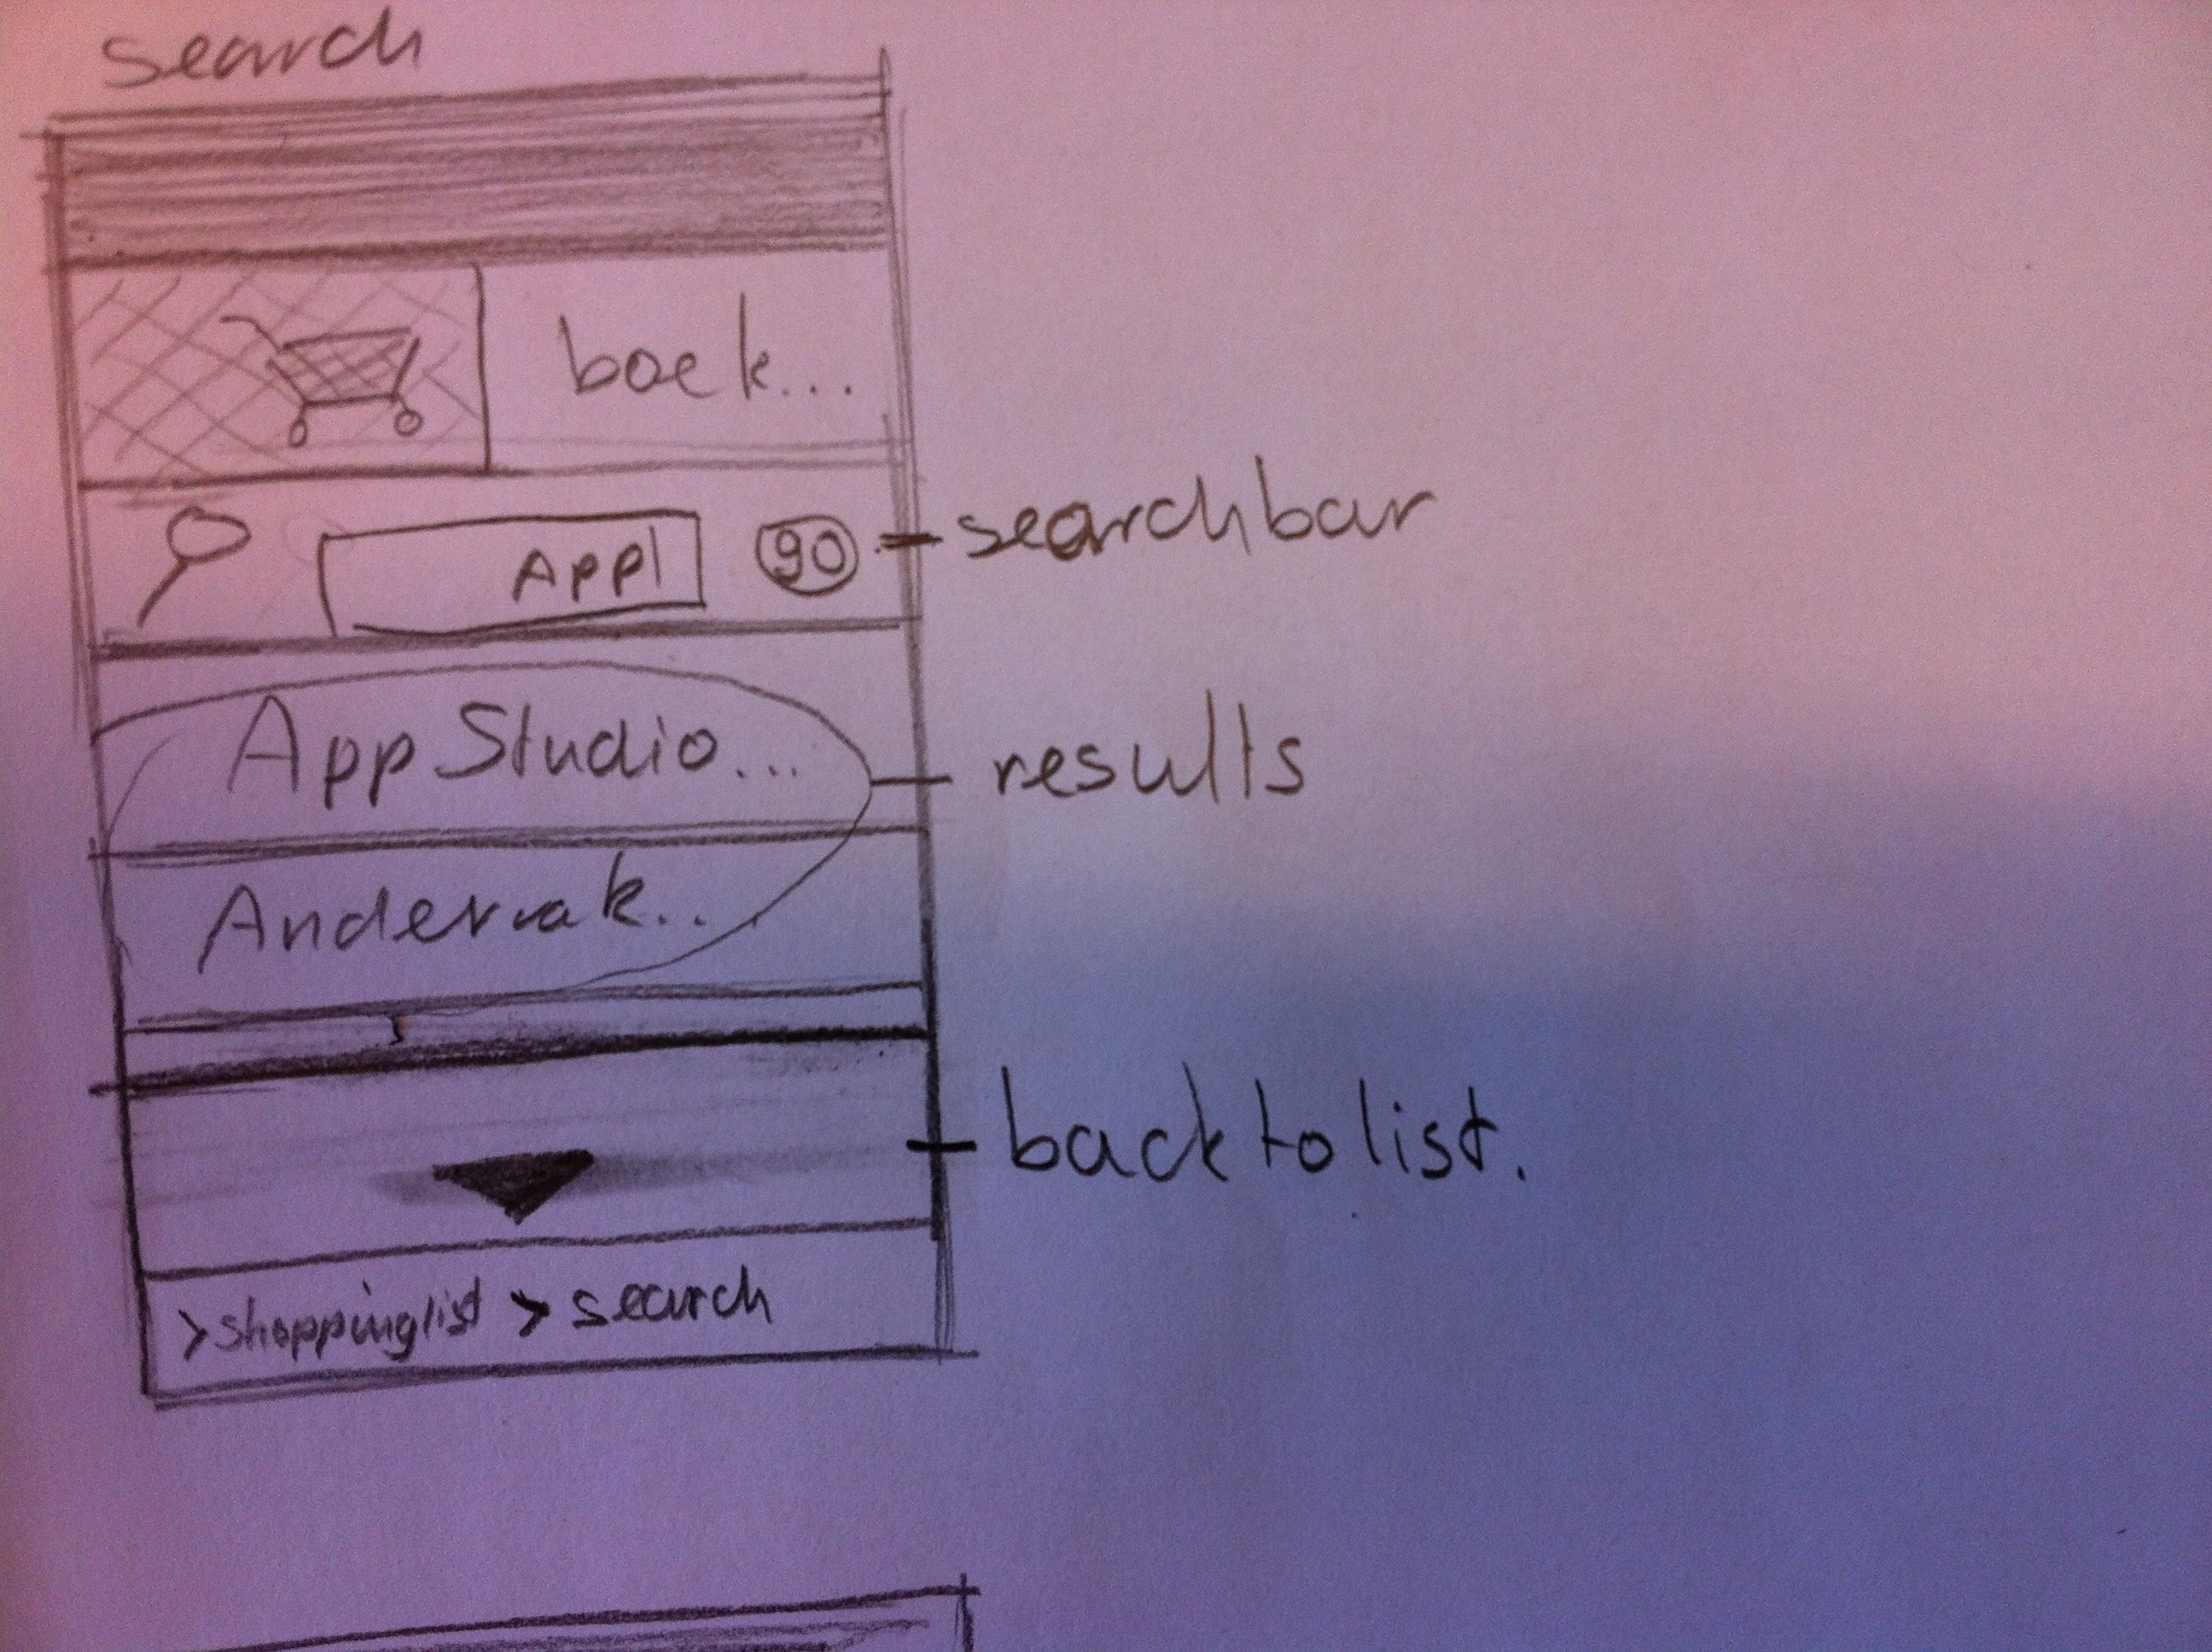 search
boek...
App| go searchbar
App Studio... results
Andervak..
back to list.
>shoppinglist > search